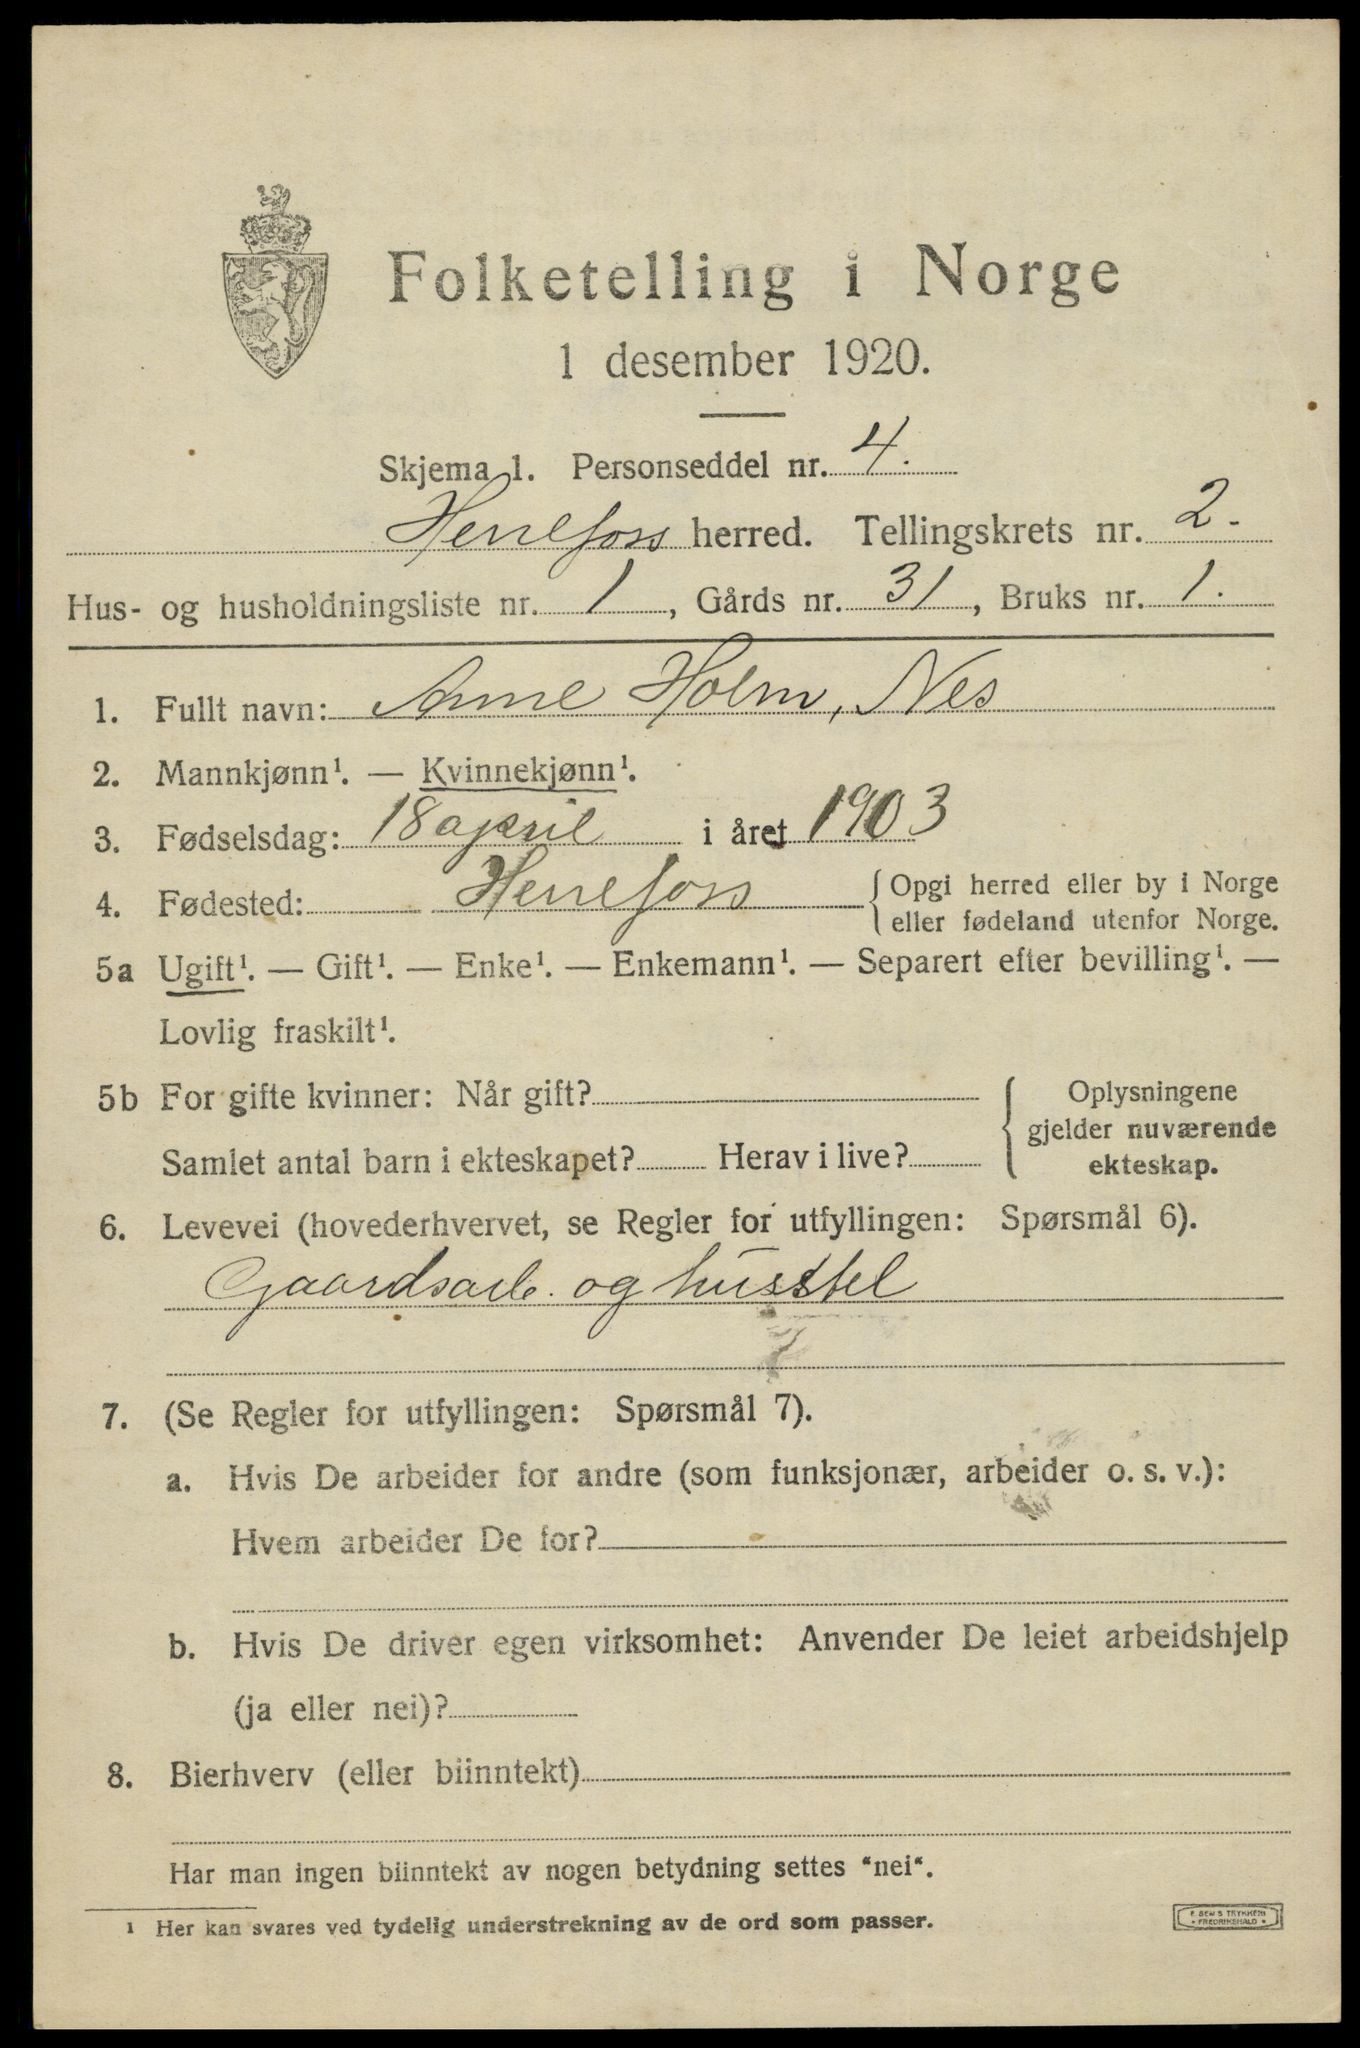 Folketelling i Norge
1 desember 1920.
Skjema 1. Personseddel nr. 4.
Herrefoss herred. Tellingskrets nr. 2.
Hus- og husholdningsliste nr. 1, Gårds nr. 31, Bruks nr. 1.
1. Fullt navn: Anne Holm, Nes
2. Mannkjønn¹. — Kvinnekjønn¹.
3. Fødselsdag: 18 april i året 1903
4. Fødested: Herrefoss {Opgi herred eller by i Norge
eller fødeland utenfor Norge.
5a Ugift¹. — Gift¹. — Enke¹. — Enkemann¹. — Separert efter bevilling¹. —
Lovlig fraskilt¹.
5b For gifte kvinner: Når gift?
Samlet antal barn i ekteskapet? Herav i live?
{ Oplysningene
gjelder nuværende
ekteskap.
6. Levevei (hovederhvervet, se Regler for utfyllingen: Spørsmål 6).
Gaardsarb. og husstel
7. (Se Regler for utfyllingen: Spørsmål 7).
a. Hvis De arbeider for andre (som funksjonær, arbeider o. s. v.):
Hvem arbeider De for?
b. Hvis De driver egen virksomhet: Anvender De leiet arbeidshjelp
(ja eller nei)?
8. Bierhverv (eller biinntekt)
Har man ingen biinntekt av nogen betydning settes "nei".
¹ Her kan svares ved tydelig understrekning av de ord som passer.
E. SEM'S TRYKKERI
• FREDRIKSHALD •